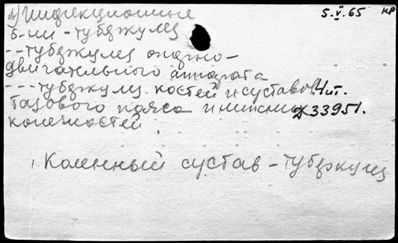 Инфекционные 5.V.65
б-ни - туберкулез
-- туберкулез опорно-
двигательного аппарата
---- туберкулез костей и суставов
тазового пояса и нижних 33951.
конечностей
Коленный сустав - туберкулез